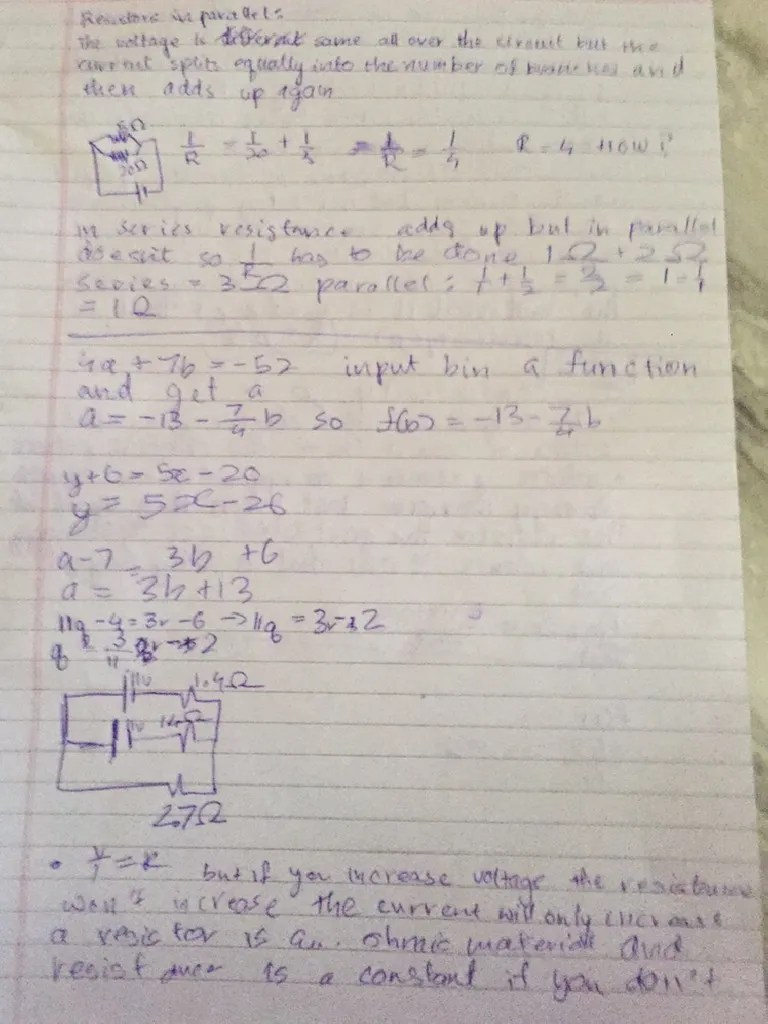 Resistors in parallel:
The voltage is same all over the circuit but the
current splits equally into the number of branches and
then adds up again
5Ω
20Ω
1/R = 1/20 + 1/5 = 1/R = 1/4 R = 4 How?
In series resistance adds up but in parallel
doesn't so 1/R has to be done 1Ω + 2Ω
series = 3Ω parallel: 1/1 + 1/2 = 3/2 = 1 - 1/1
= 1Ω
4a + 7b = -52 input b in a function
and get a
a = -13 - 7/4 b so f(b) = -13 - 7/4 b
y+6 = 5x - 20
y = 5x - 26
a-7 = 3b + 6
a = 3b + 13
11q - 4 = 3r - 6 → 11q = 3r - 2
q = 3/11 2
11v 1.4Ω
11v
2.7Ω
• V/I = R but if you increase voltage the resistance
won't increase the current will only increase
a resistor is an ohmic material and
is a constant if you don't